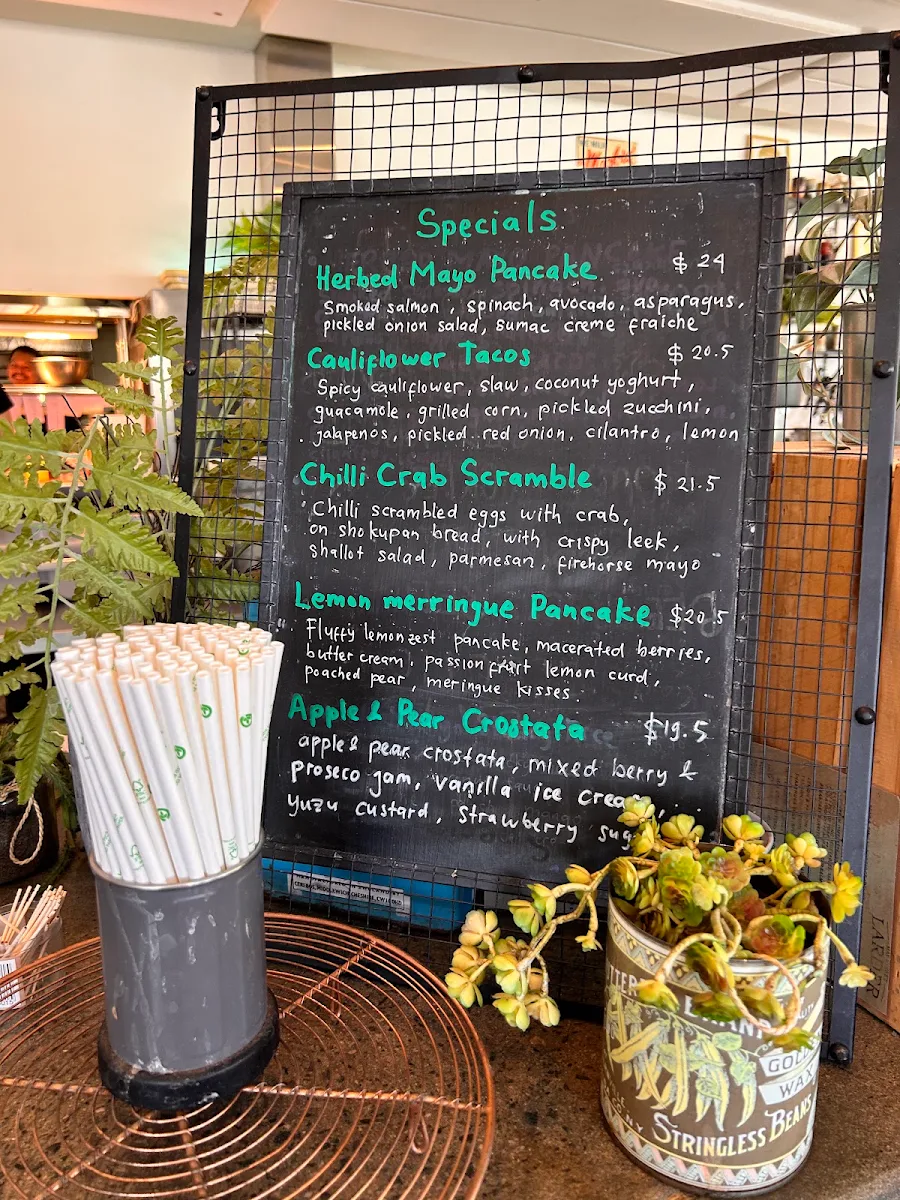 Specials
Herbed Mayo Pancake $ 24
Smoked salmon, spinach, avocado, asparagus,
pickled onion salad, sumac creme fraiche
Cauliflower Tacos $ 20.5
Spicy cauliflower, slaw, coconut yoghurt,
guacamole, grilled corn, pickled zucchini,
jalapenos, pickled red onion, cilantro, lemon
Chilli Crab Scramble $ 21.5
Chilli scrambled eggs with crab,
on shokupan bread, with crispy leek,
shallot salad, parmesan, firehorse mayo
Lemon merringue Pancake $20.5
Fluffy lemon zest pancake, macerated berries,
butter cream, passion fruit lemon curd,
poached pear, meringue kisses
Apple & Pear Crostata $19.5
apple & pear crostata, mixed berry &
proseco jam, vanilla ice
yuzu custard, strawberry
GOLD
WAX
STRINGLESS BEANS